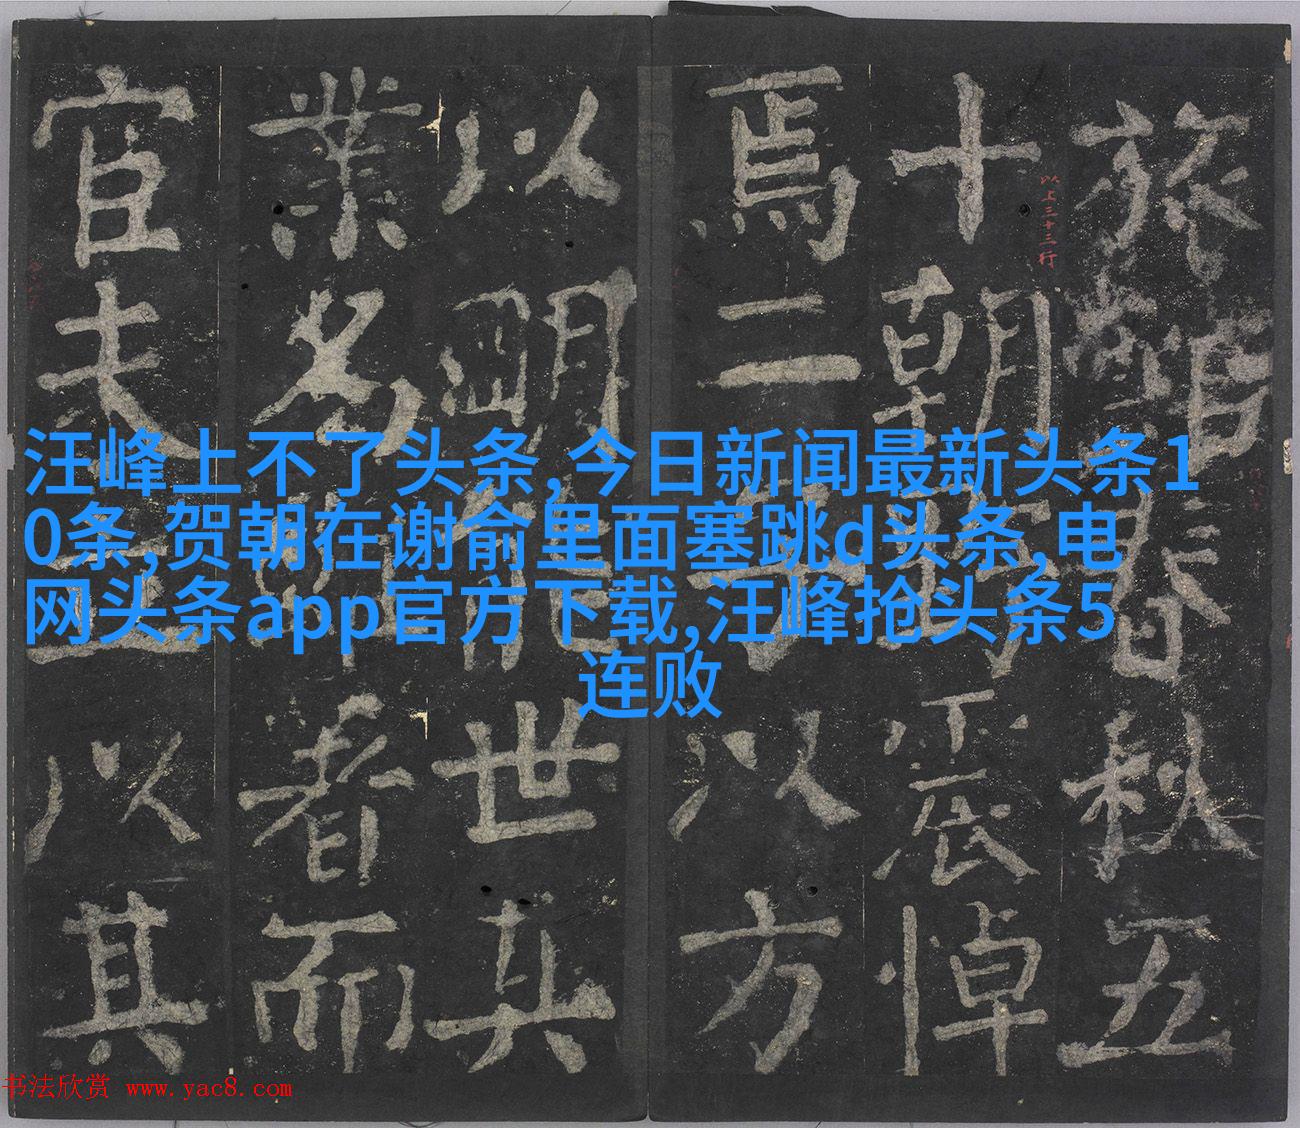 汪峰上不了头条,今日新闻最新头条1
0条,贺朝在谢俞里面塞跳d头条,电
网头条app官方下载,汪峰抢头条5
连败
旅館春秋五
十朝野震悼
焉二子以方
以明能世其
業名者而
官夫以其
以上三十三行
书法欣赏 www.yac8.com